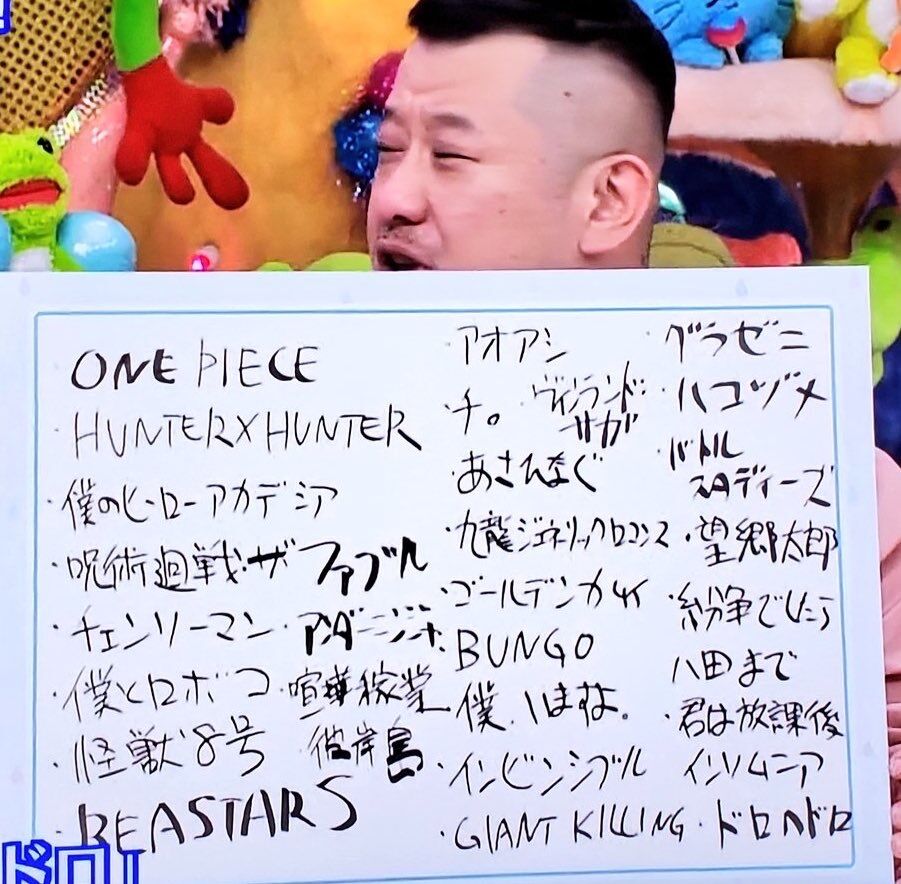 ・ONE PIECE
・HUNTER×HUNTER
・僕のヒーローアカデミア
・呪術廻戦・ザ ファブル
・チェンソーマン・アンダーニンジャ
・僕とロボコ・喧嘩稼業
・怪獣8号・彼岸島
・BEASTARS
・アオアシ
・チ。・ヴィンランド・
サガ
・あさひなぐ
・九龍ジェネリックロマンス
・ゴールデンカムイ
・BUNGO
・僕はまだ
・インビンシブル
・GIANT KILLING・ドロヘドロ
・グラゼニ
・ハコヅメ
・バトル
スタディーズ
・望郷太郎
・紛争でしたら
八田まで
・君は放課後
インソムニア
ドロ!